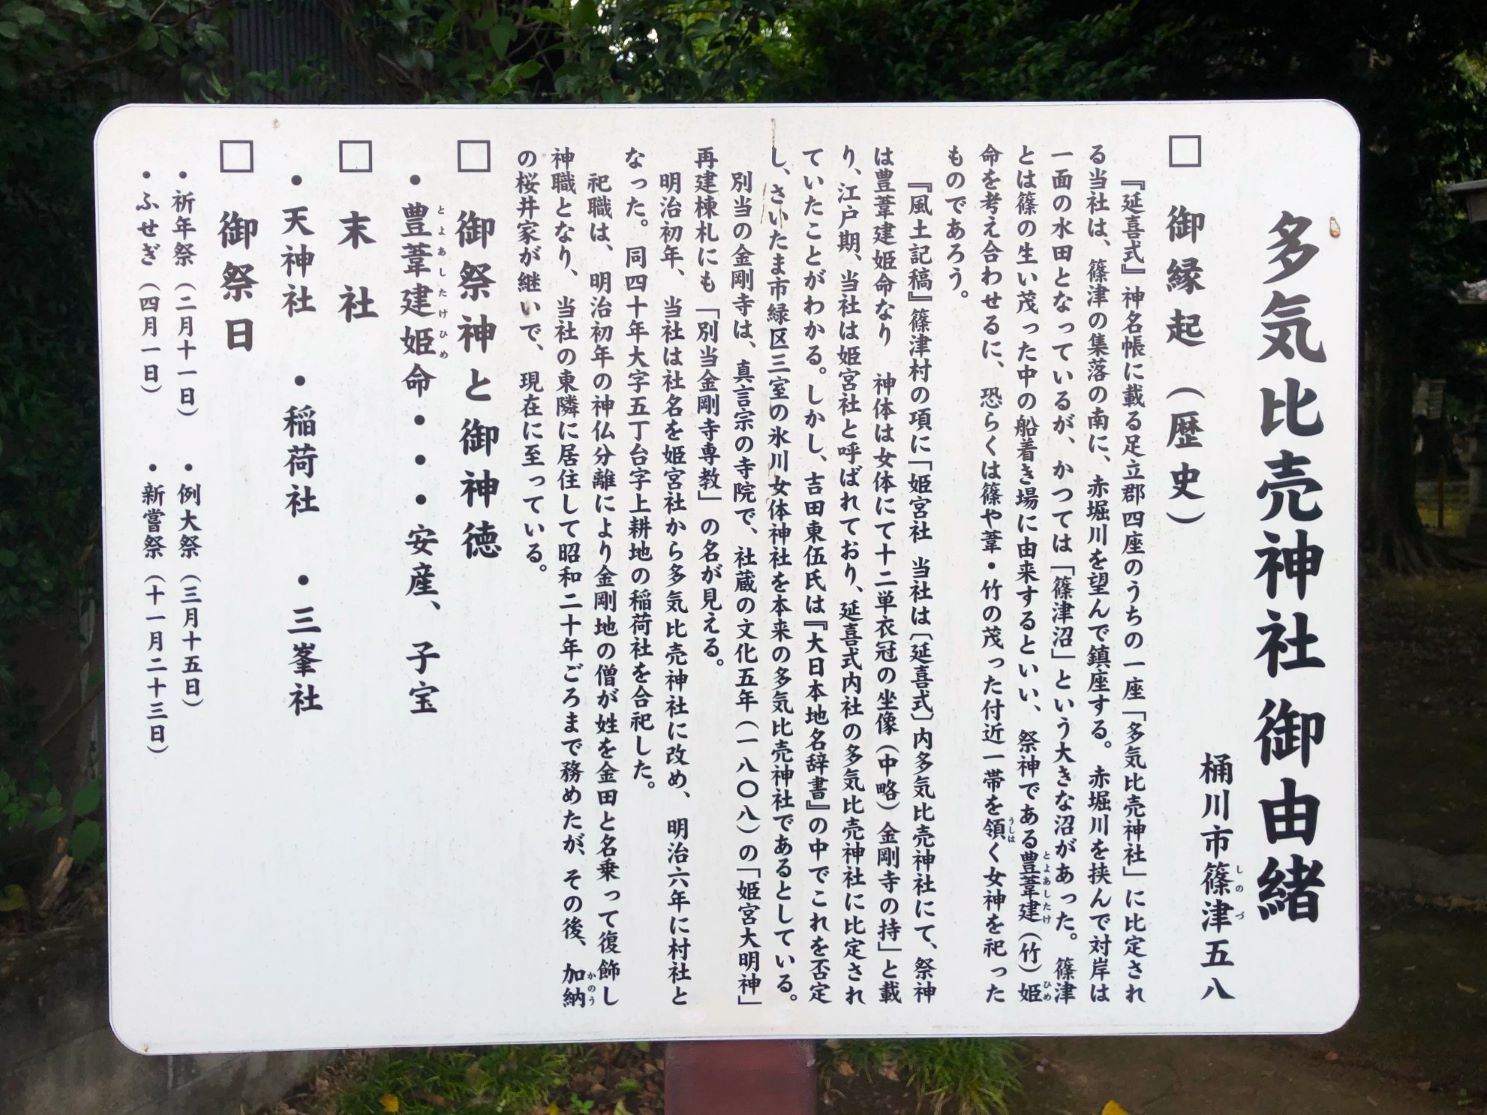 多気比売神社 御由緒
桶川市篠津五八
しのづ
□ 御縁起（歴史）
『延喜式』神名帳に載る足立郡四座のうちの一座「多気比売神社」に比定され
る当社は、篠津の集落の南に、赤堀川を望んで鎮座する。赤堀川を挟んで対岸は
一面の水田となっているが、かつては「篠津沼」という大きな沼があった。篠津
とは篠の生い茂った中の船着き場に由来するといい、祭神である豊葦建（竹）姫
とよあしたけ ひめ
命を考え合わせるに、恐らくは篠や葦・竹の茂った付近一帯を領く女神を祀った
うしは
ものであろう。
『風土記稿』篠津村の項に「姫宮社 当社は〔延喜式〕内多気比売神社にて、祭神
は豊葦建姫命なり 神体は女体にて十二単衣冠の坐像（中略）金剛寺の持」と載
り、江戸期、当社は姫宮社と呼ばれており、延喜式内社の多気比売神社に比定され
ていたことがわかる。しかし、吉田東伍氏は『大日本地名辞書』の中でこれを否定
し、さいたま市緑区三室の氷川女体神社を本来の多気比売神社であるとしている。
別当の金剛寺は、真言宗の寺院で、社蔵の文化五年（一八〇八）の「姫宮大明神」
再建棟札にも「別当金剛寺専教」の名が見える。
明治初年、当社は社名を姫宮社から多気比売神社に改め、明治六年に村社と
なった。同四十年大字五丁台字上耕地の稲荷社を合祀した。
祀職は、明治初年の神仏分離により金剛地の僧が姓を金田と名乗って復飾し
神職となり、当社の東隣に居住して昭和二十年ごろまで務めたが、その後、加納
かのう
の桜井家が継いで、現在に至っている。
□ 御祭神と御神徳
・豊葦建姫命・・・安産、子宝
とよあしたけひめ
□ 末社
・天神社 ・稲荷社 ・三峯社
□ 御祭日
・祈年祭（二月十一日） ・例大祭（三月十五日）
・ふせぎ（四月一日） ・新嘗祭（十一月二十三日）